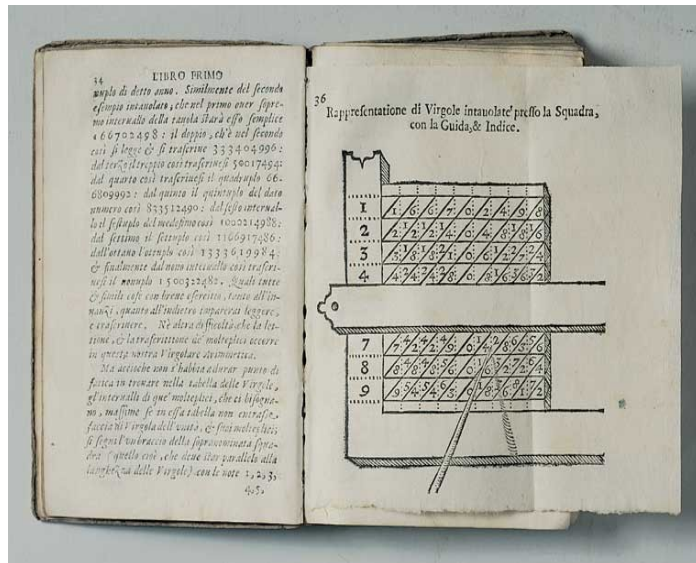 34 LIBRO PRIMO
nuplo di detto anno. Similmente del secondo
esempio intauolato, che nel primo ouer supre-
mo interuallo della tauola starà esso semplice
166702498: il doppio, ch'è nel secondo
così si legge & si trascriue 333404996:
dal terzo il treppio così trascriuesi 50017494:
dal quarto così trascriuesi il quadruplo 66-
6809992: dal quinto il quintuplo del dato
numero così 833512490: dal sesto interual-
lo il sestuplo del medesimo così 1000214988:
dal settimo il settuplo così 1166917486:
dall'ottauo l'ottuplo così 1333619984:
& finalmente dal nono interuallo così trascri-
uesi il nonuplo 1500322482. Quali tutte
& simili cose con breue esercitio, tanto all'in-
nanzi, quanto all'indietro imparerai leggere,
e trascriuere. Nè altra difficoltà che la let-
tione, & la trascrittione de' molteplici occorre
in questa nostra Virgolare Aritmetica.
Ma accioche non s'habbia a durar punto di
fatica in trouare nella tabella delle Virgole,
gl'interualli di que' molteplici, che ci bisogna-
no, massime se in essa tabella non entrasse
faccia di Virgola dell'vnità, & suoi molteplici;
si segni l'vn braccio della sopranominata squa-
dra (quello cioè, che deue star parallelo alla
lunghezza delle Virgole) con le note 1, 2, 3,
4, 5,
36
Rappresentatione di Virgole intauolate presso la Squadra,
con la Guida, & Indice.
1 1 6 6 7 0 2 4 9 8
2
3
4
7
8
9